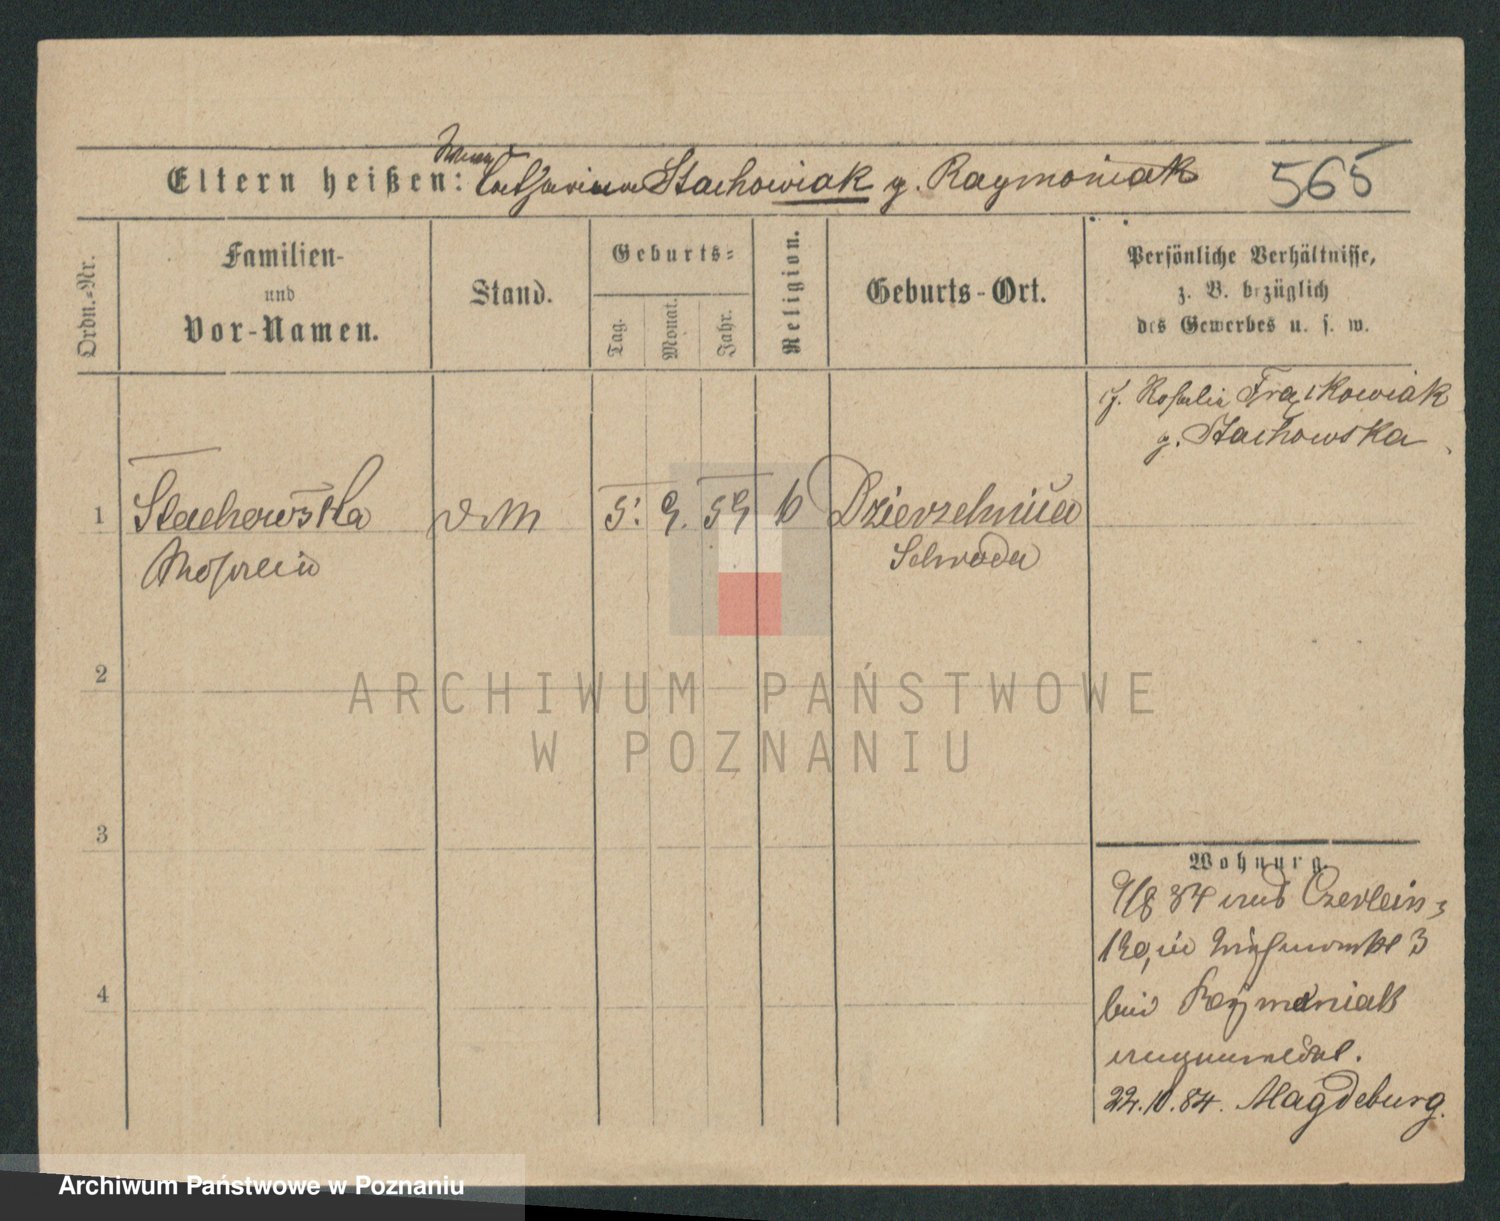 Eltern heißen: Catharina Stachowiak g. Raymoniak 565
Ordn.-Nr.
Familien-
und
Vor-Namen.
Stand.
Geburts-
Tag.
Monat.
Jahr.
Religion.
Geburts-Ort.
Persönliche Verhältnisse,
z. B. bezüglich
des Gewerbes u. s. w.
Frąckowiak
g. Stachowska
1 Stachowska 5. 9. 59 Dzierzchnica
Schroda
2
ARCHIWUM PAŃSTWOWE
W POZNANIU
3
Wohnung.
84 aus Czerlein
3
4
bei Raymoniak
angemeldet.
22.10.84. Magdeburg.
Archiwum Państwowe w Poznaniu